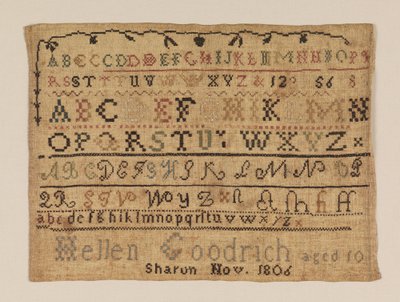 ABCCCDDDEFGHIJKLIIMNNNOPS
RSSTTUVWWXYZ&12356 8
ABCDEFGHIKLMN
OPQRSTUVWXYZ
ABCDEFGHIJKLMNOP
QRSTVWYZ
abcdefghiklmnopqrstuvwxyz
Hellen Goodrich aged 10
Sharon Nov. 1806